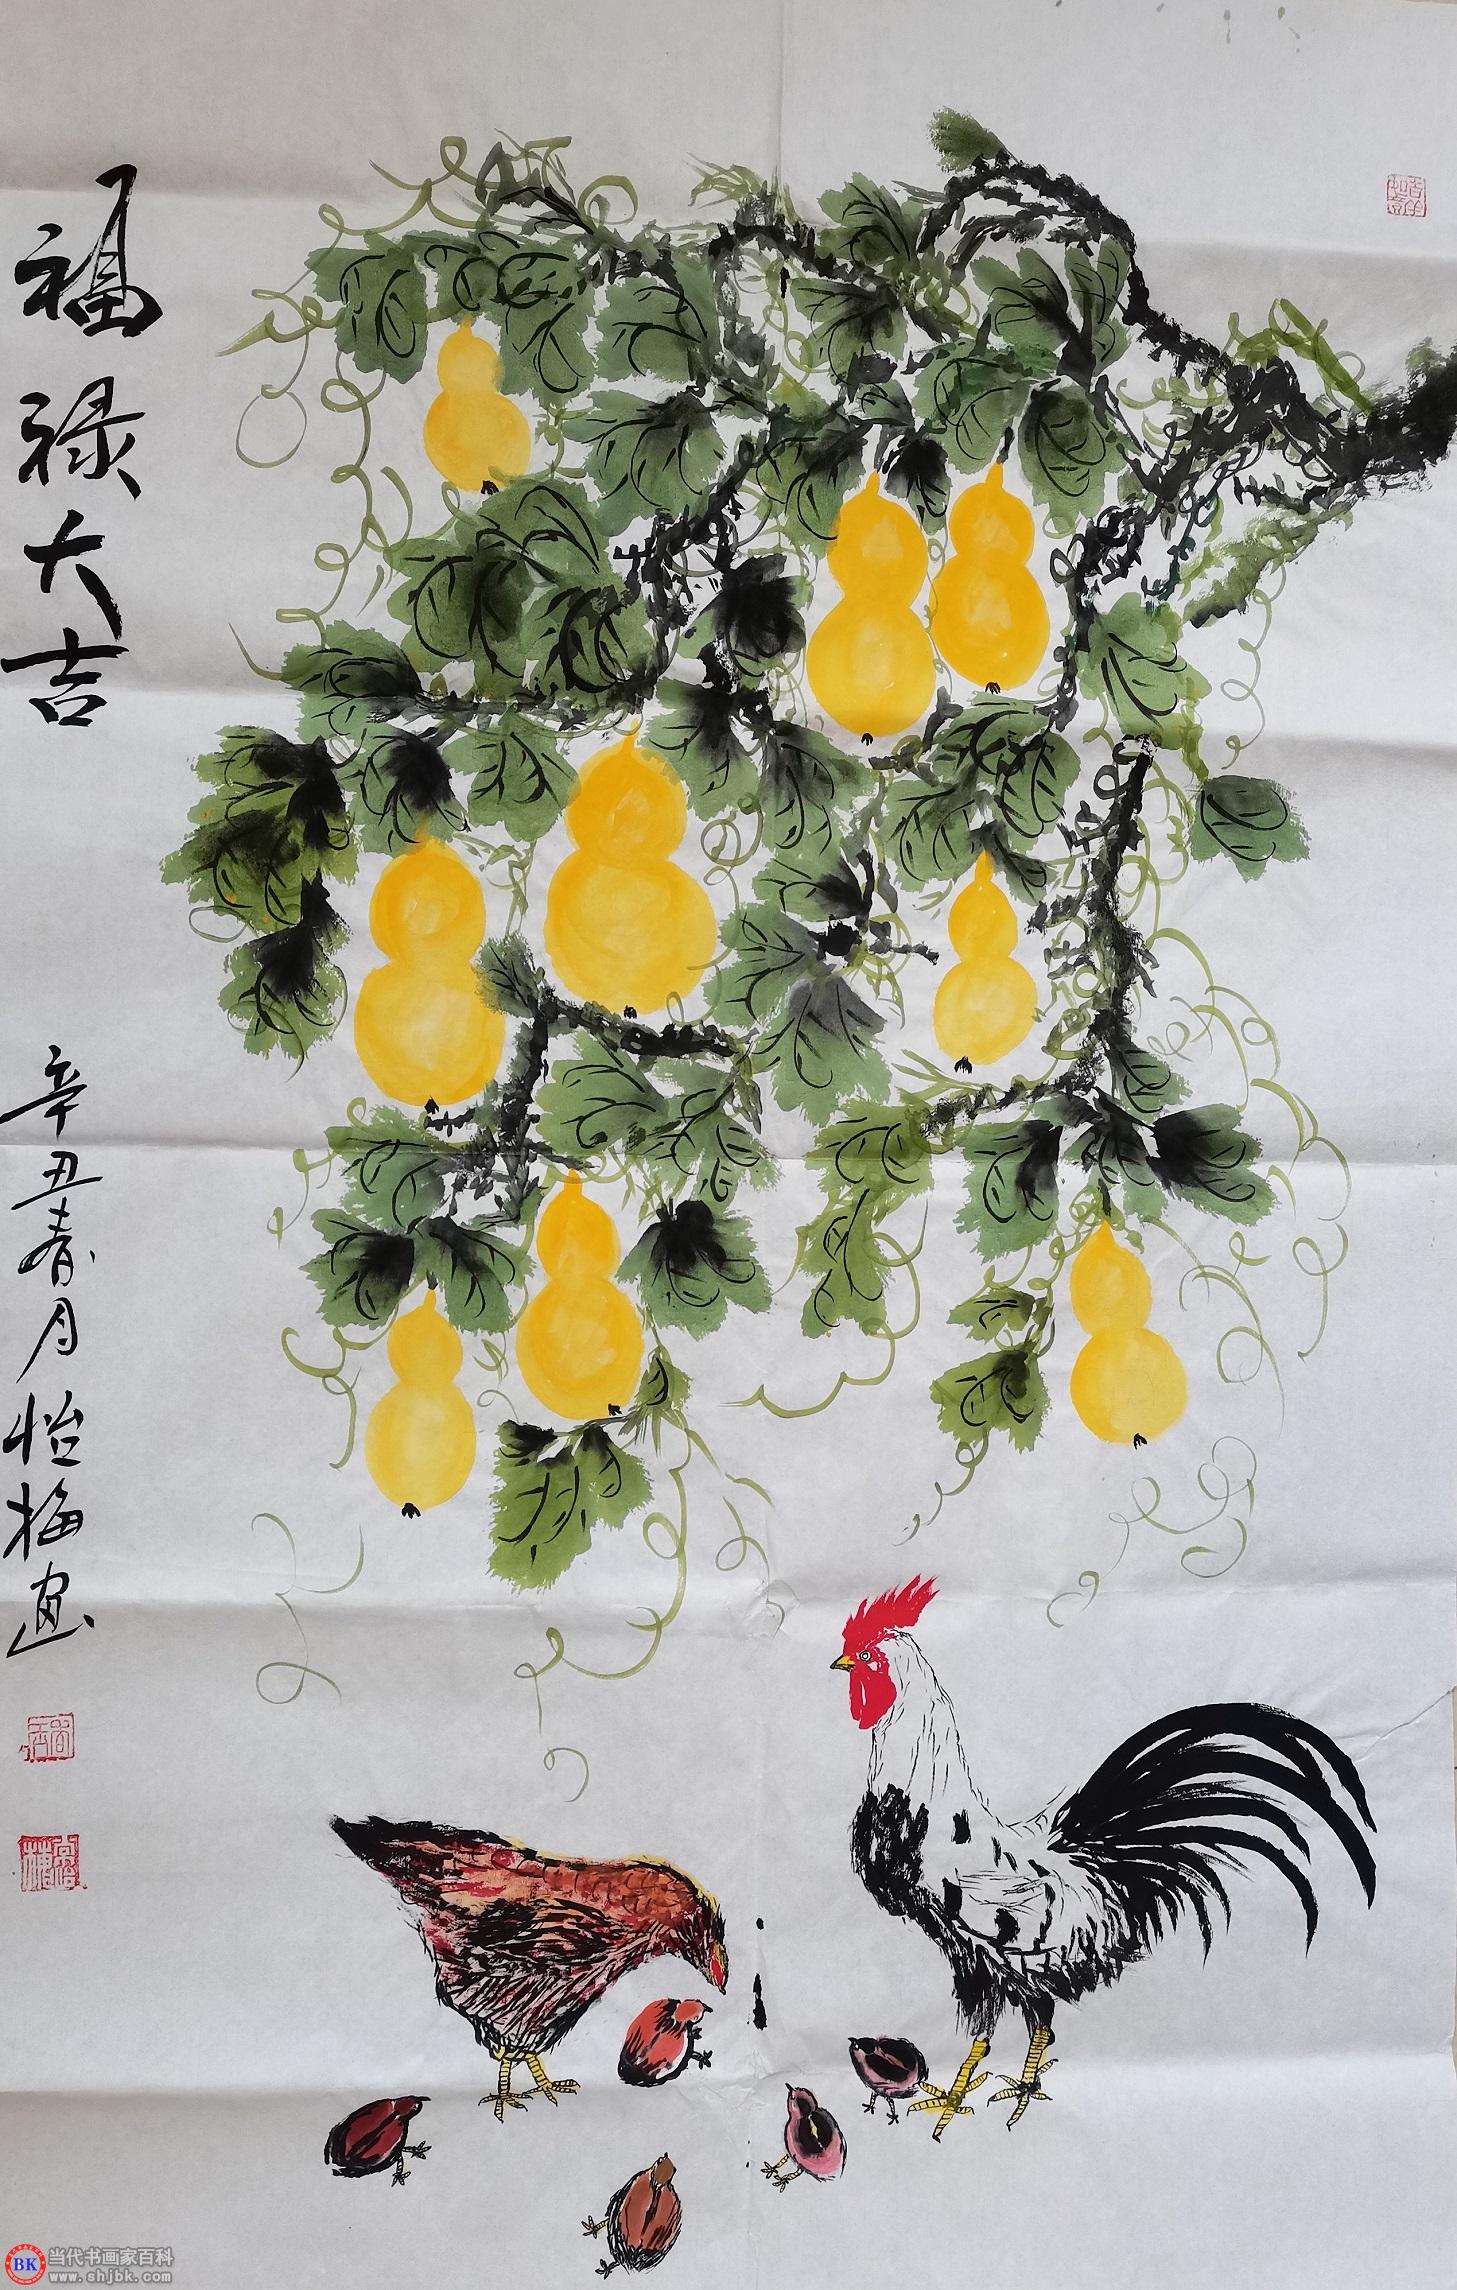 福禄大吉
辛丑春月怡梅画
BK
当代书画家百科
www.shjbk.com